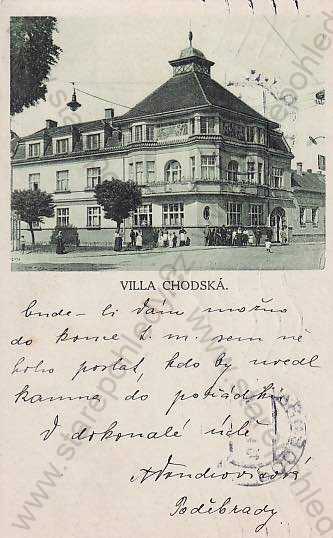 VILLA CHODSKÁ.
bude-li Vám možno
do konce t. m. sem ně
koho poslat, kdo by uvedl
kamna do pořádku.
V dokonalé úctě
Poděbrady
www.starepohledy.cz